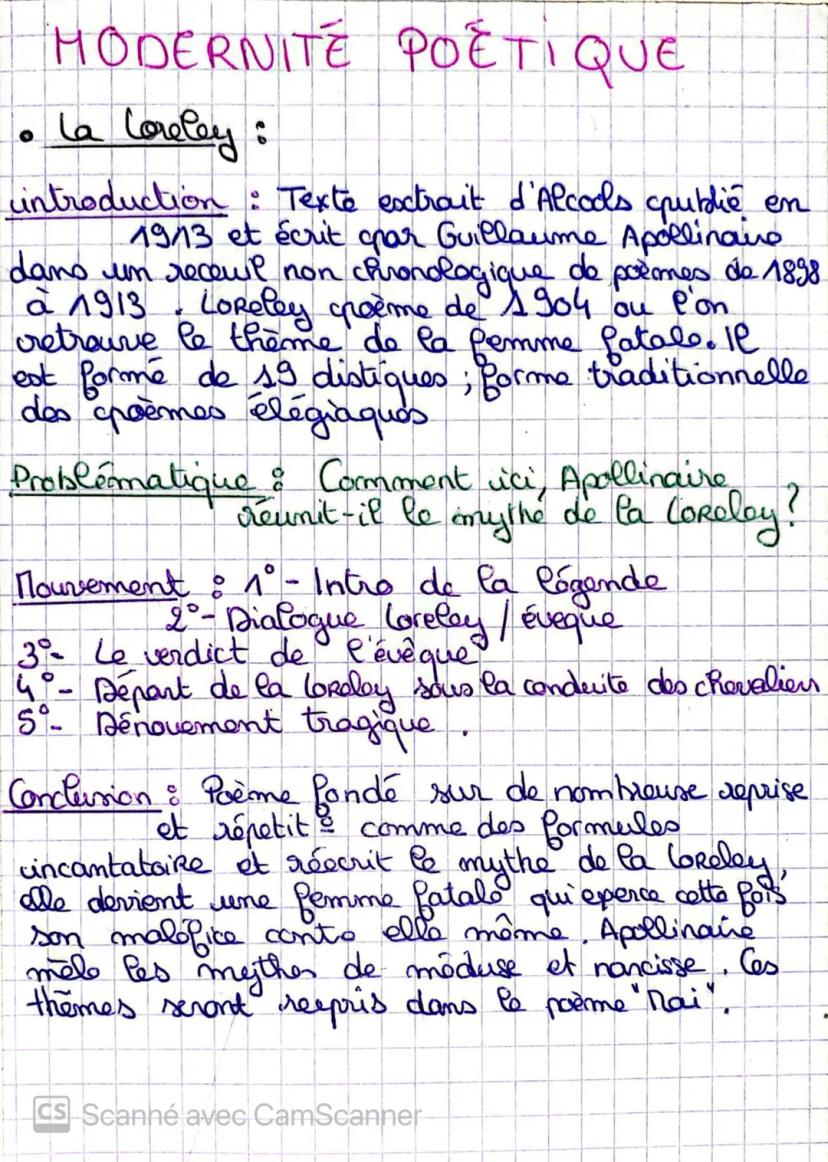 MODERNITÉ POÉTIQUE
• La Loreley :
introduction : Texte extrait d'Alcools publié en
1913 et écrit par Guillaume Apollinaire
dans un receuil non chronologique de poèmes de 1898
à 1913. Loreley poème de 1904 ou l'on
retrouve le thème de la femme fatale. Il
est formé de 19 distiques ; forme traditionnelle
des poèmes élégiaques
Problématique : Comment ici, Apollinaire
réunit-il le mythe de la Loreley ?
Mouvement : 1° - Intro de la légende
2° - Dialogue Loreley / éveque
3° - Le verdict de l'évêque
4° - Départ de la Loreley sous la conduite des chevaliers
5° - Dénouement tragique .
Conclusion : Poème fondé sur de nombreuse reprise
et répetit° comme des formules
incantatoire et réécrit le mythe de la Loreley,
elle devient une femme fatale qui éperce cette fois
son maléfice contre elle même. Apollinaire
mêle les mythes de méduse et narcisse. Ces
thèmes seront reepris dans le poème "Mai".
CS Scanné avec CamScanner